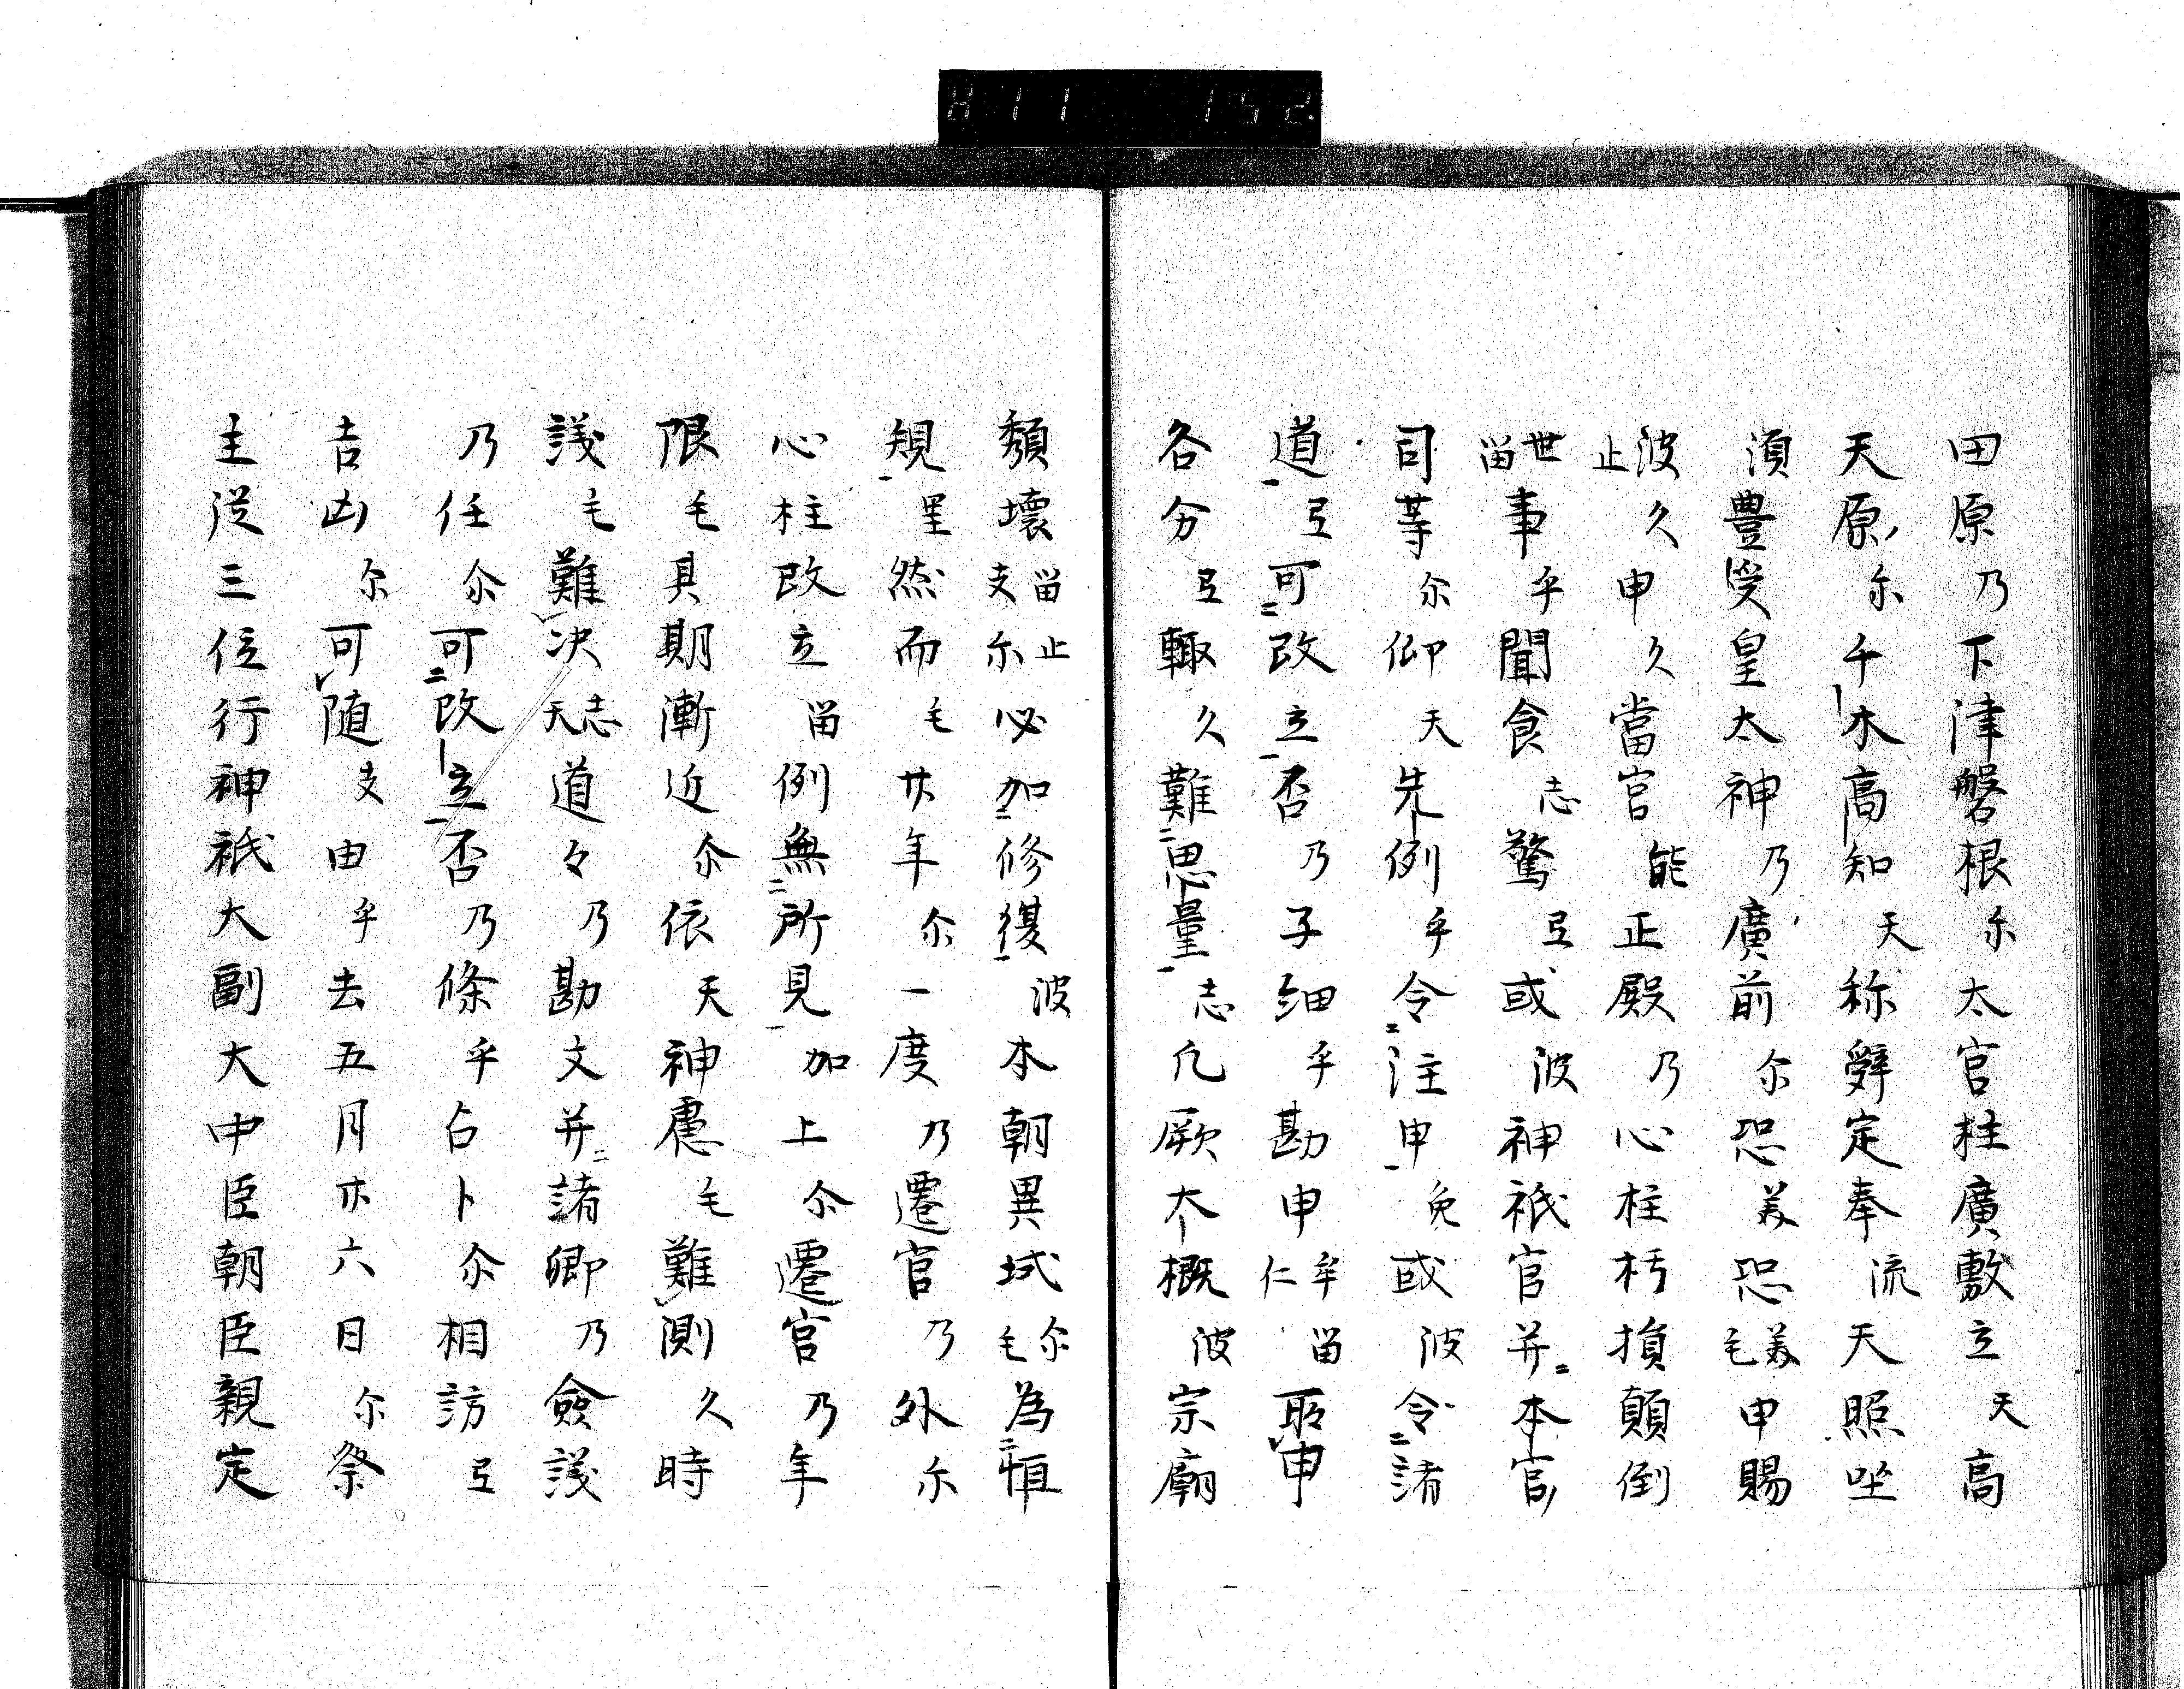 H11 152.
田原乃下津磐根尓太宮柱廣敷立天高
天原尓千木高知天称辞定奉流天照坐
須豊受皇太神乃廣前尓恐美恐美毛申賜
波久申久當宮能正殿乃心柱朽損顛倒
世留事乎聞食志驚弖或波神祇官并二本官
司等尓仰天先例乎令二注申一免或波令二諸
道一弖可二改立一否乃子細乎勘申牟留仁所申
各分弖輙久難二思量一志凡厥大概波宗廟
頽壊留支止尓必加二修復一波本朝異域尓毛為二恒
規一里然而毛廿年尓一度乃遷宮乃外尓
心柱改立留例無二所見一加上尓遷宮乃年
限毛其期漸近尓依天神慮毛難測久時
議毛難決志天道々乃勘文并二諸卿乃僉議
乃任尓可二改立一否乃條乎占卜尓相訪弖
吉凶尓可随支由乎去五月廿六日尓祭
主従三位行神祇大副大中臣朝臣親定